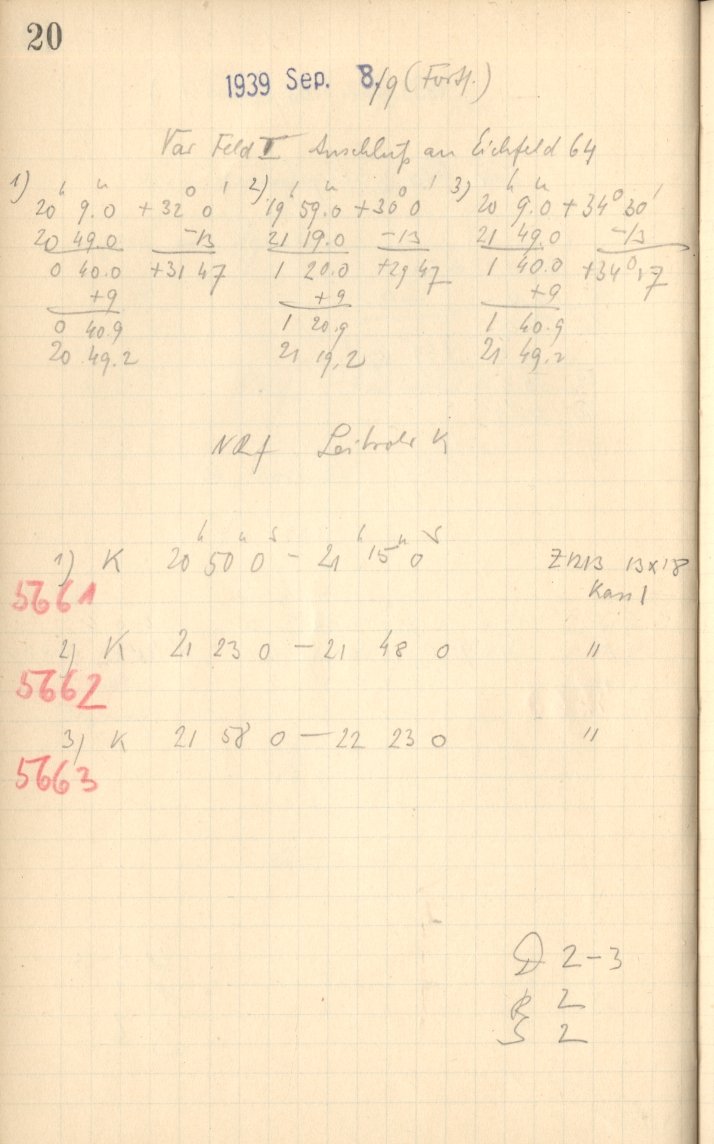 20
1939 Sep. 8./9 (Forts.)
Var Feld I Anschluß an Eichfeld 64
1) 20ʰ 9.0ᵐ +32° 0' 2) 19ʰ 59.0ᵐ +30° 0' 3) 20ʰ 9.0ᵐ +34° 30'
20 49.0 -13 21 19.0 -13 21 49.0 -13
0 40.0 +31 47 1 20.0 +29 47 1 40.0 +34° 17
+9 +9 +9
0 40.9 1 20.9 1 40.9
20 49.2 21 19.2 21 49.2
Leitrohr K
1) K 20ʰ 50ᵐ 0ˢ - 21ʰ 15ᵐ 0ˢ 13x18
5661 Kass 1
2) K 21 23 0 - 21 48 0 "
5662
3) K 21 58 0 - 22 23 0 "
5663
D 2-3
R 2
S 2